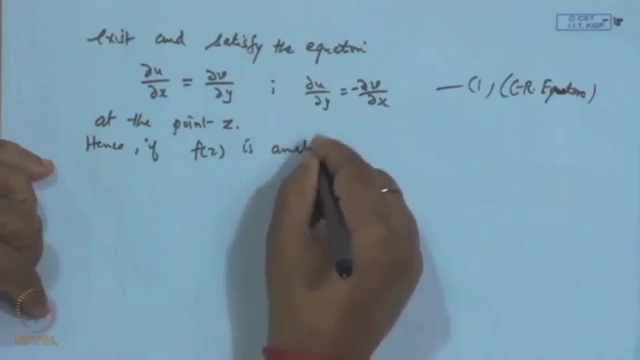 © CET
I.I.T. KGP
exist and satisfy the equation
∂u/∂x = ∂v/∂y ; ∂u/∂y = -∂v/∂x — (1) (C-R. Equations)
at the point z.
Hence, if f(z) is anal
NPTEL